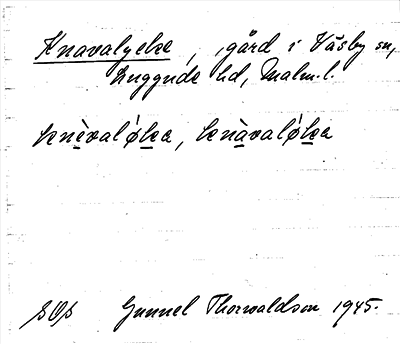 Knavalycke, gård i Väsby sn,
Luggude hd, Malm.l.
knèvalø̀kea, knàvaløkea
SOS Gunnel Thorwaldson 1945.